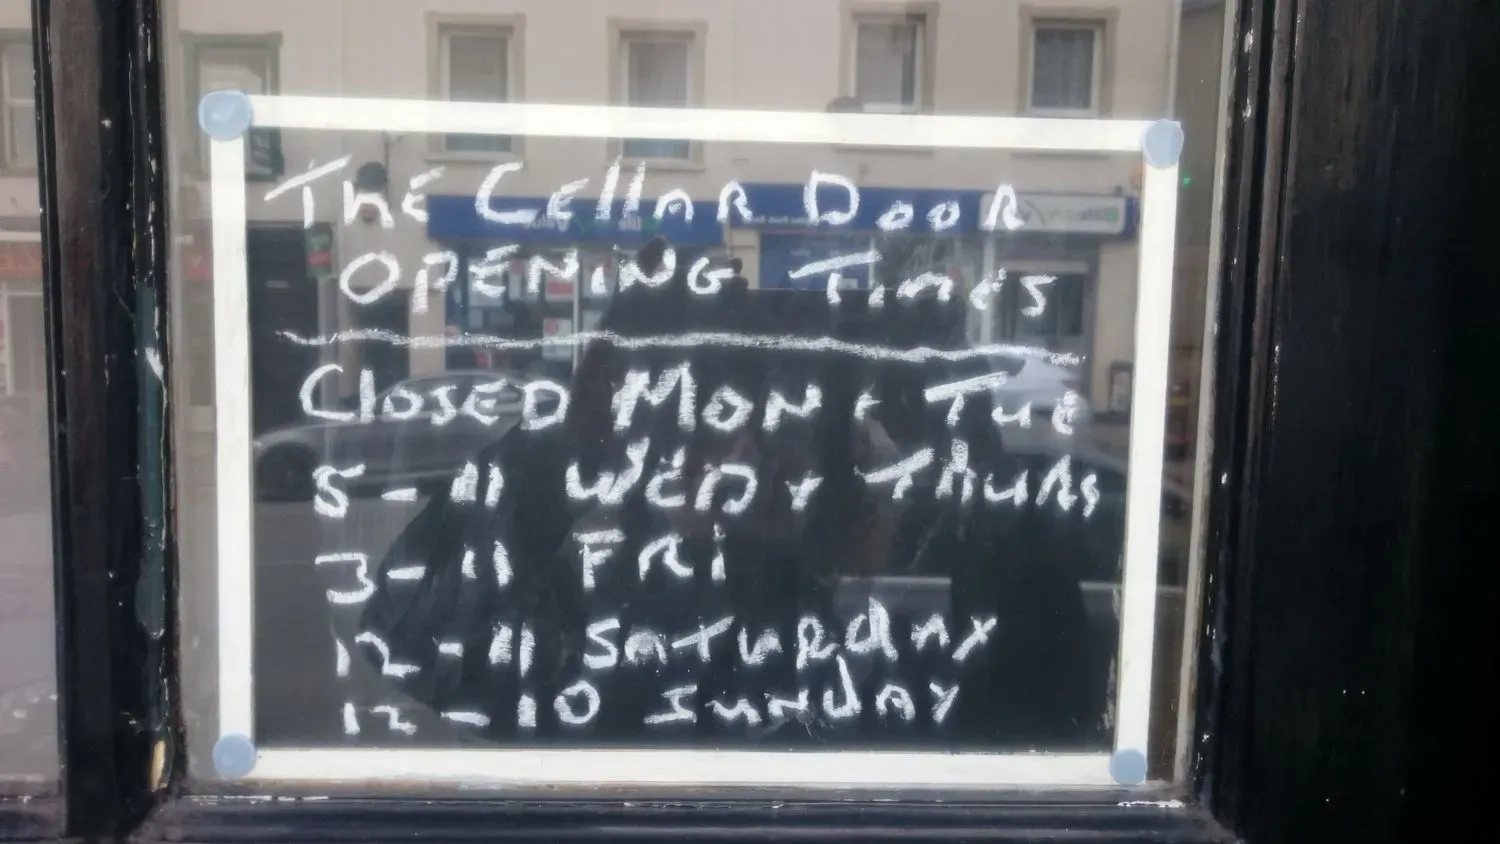 The Cellar Door
Opening Times
Closed Mon + Tue
5-11 Wed + Thurs
3-11 Fri
12-11 Saturday
12-10 Sunday